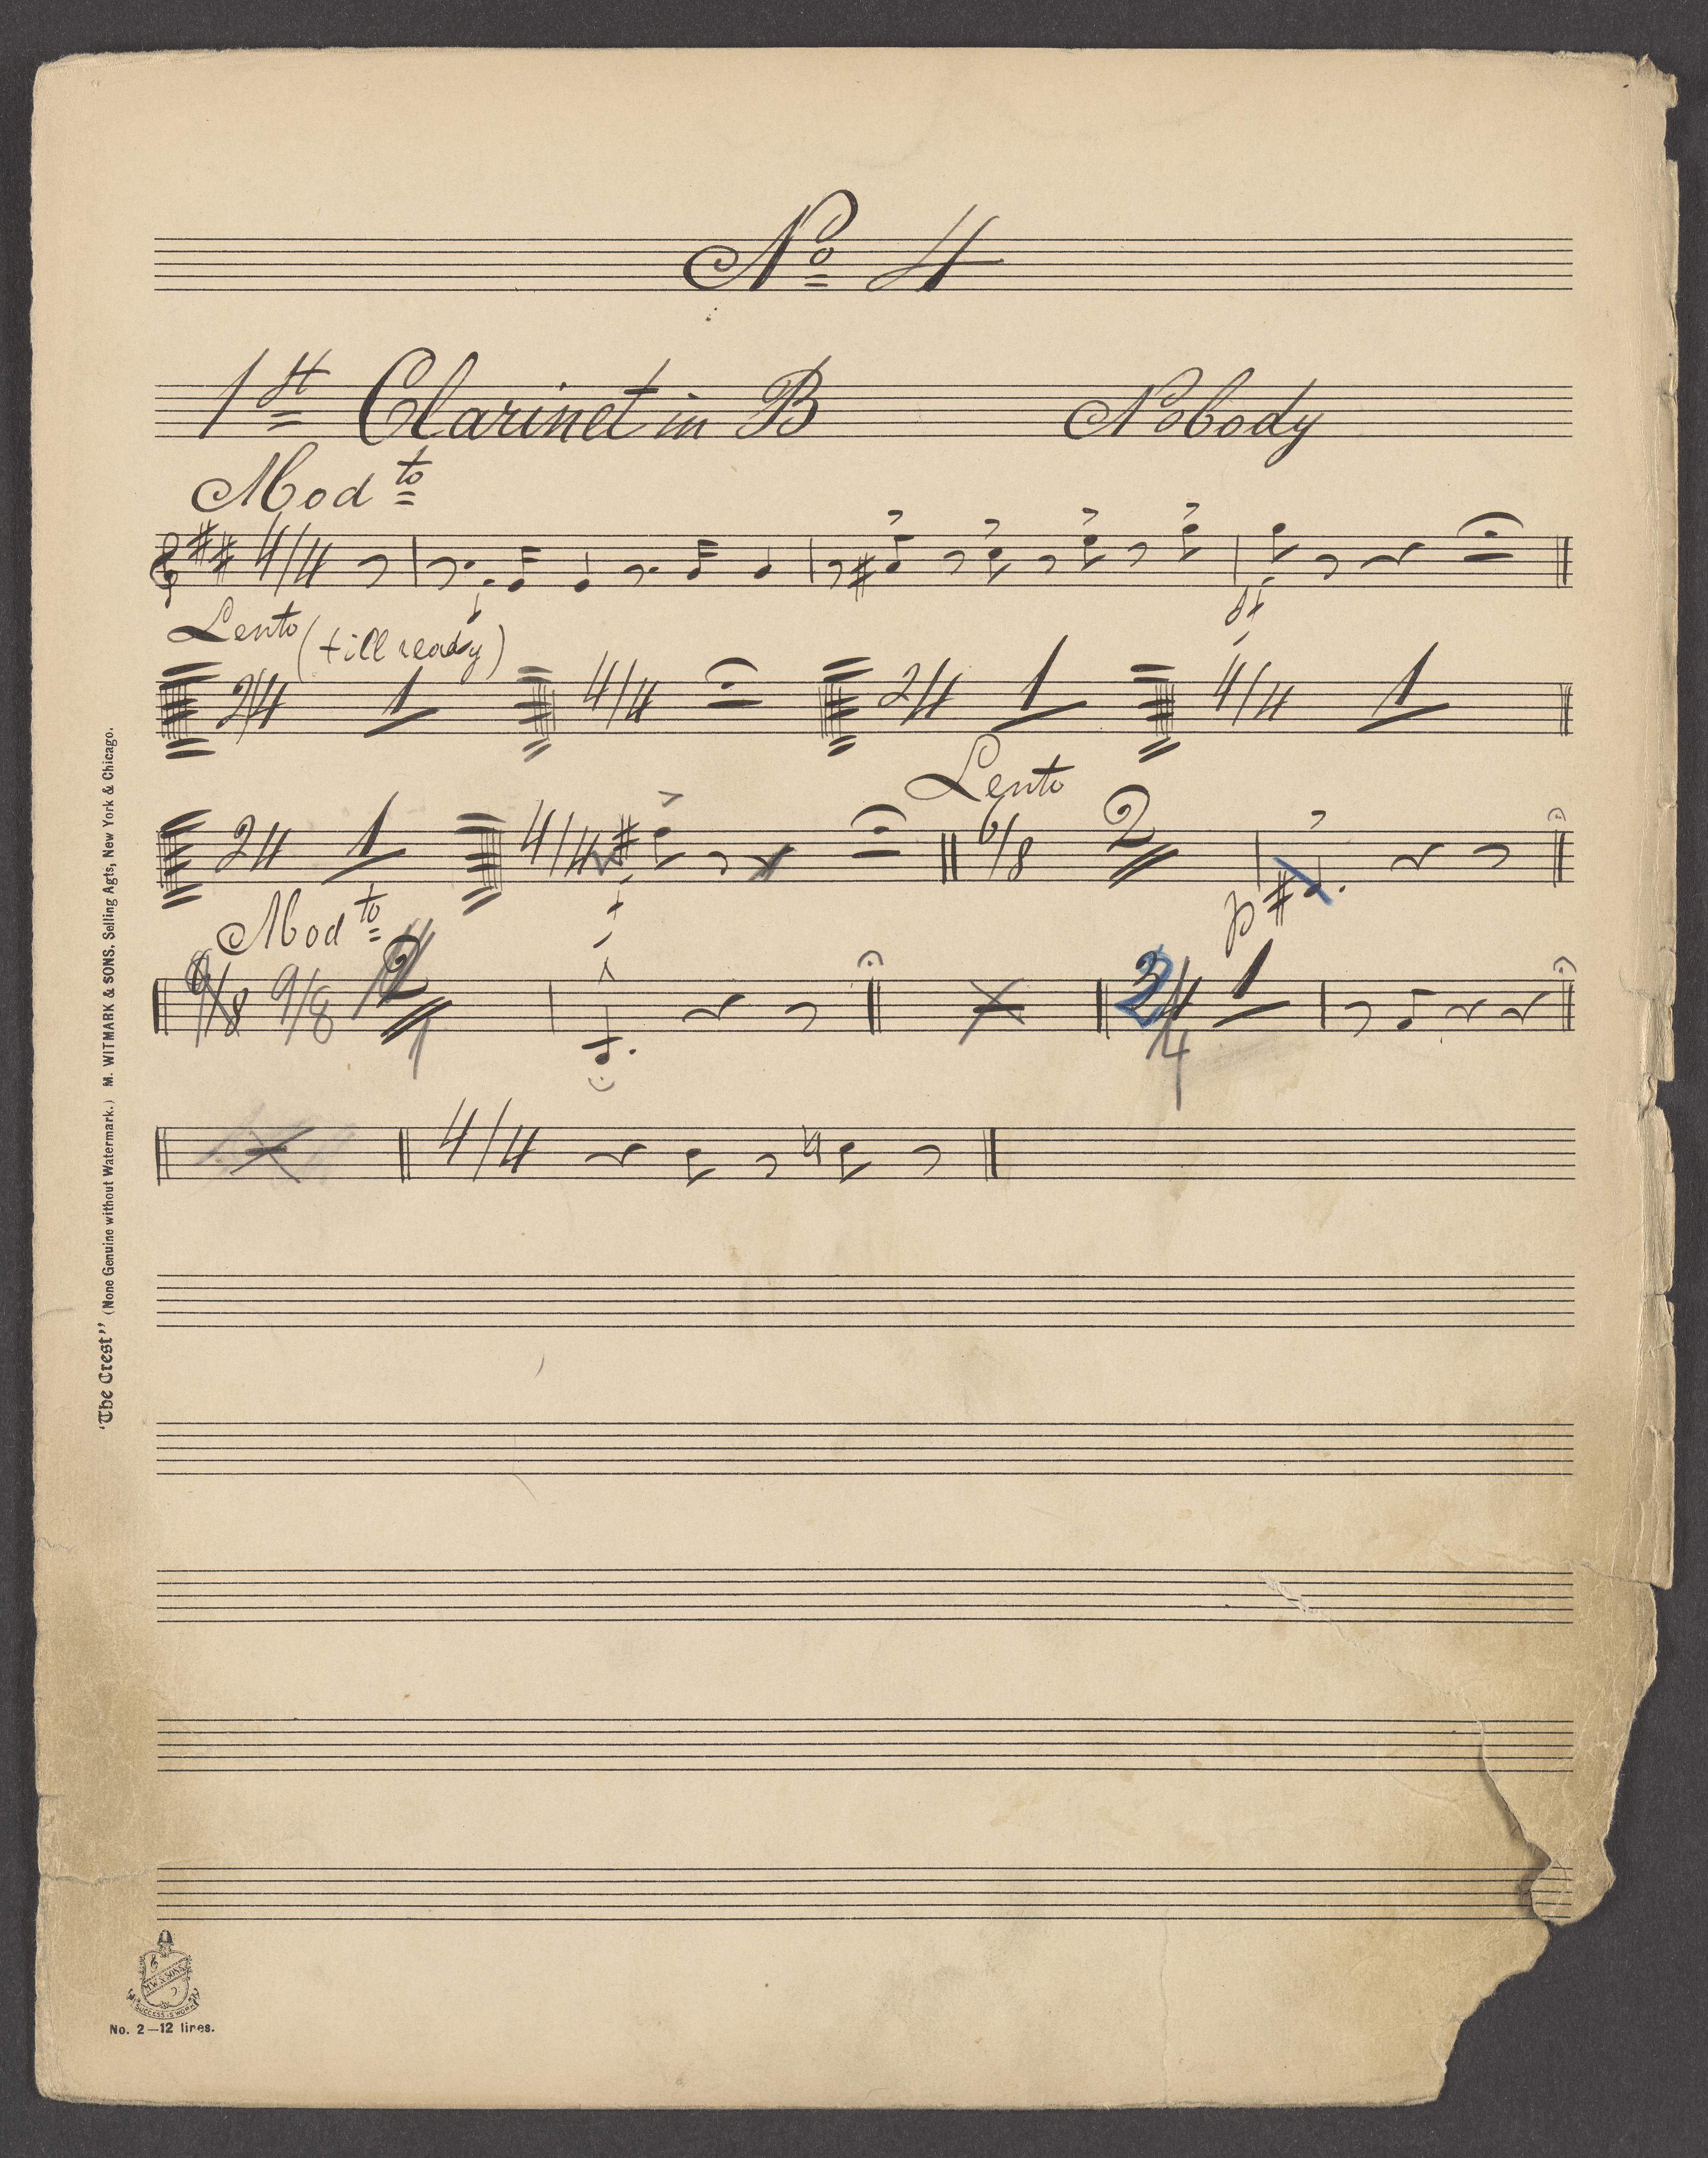 No 4
1st Clarinet in B Nobody
Modto
4/4
Lento (till ready)
2/4 1 4/4 2/4 1 4/4 1
Lento
2/4 1 4/4 6/8 2
p
Modto
9/8 9/8 2 1 2/4 1
4
4/4
"The Crest" (None Genuine without Watermark.) M. WITMARK & SONS, Selling Agts, New York & Chicago.
M.W. & SONS
SUCCESS IS WORK
No. 2—12 lines.